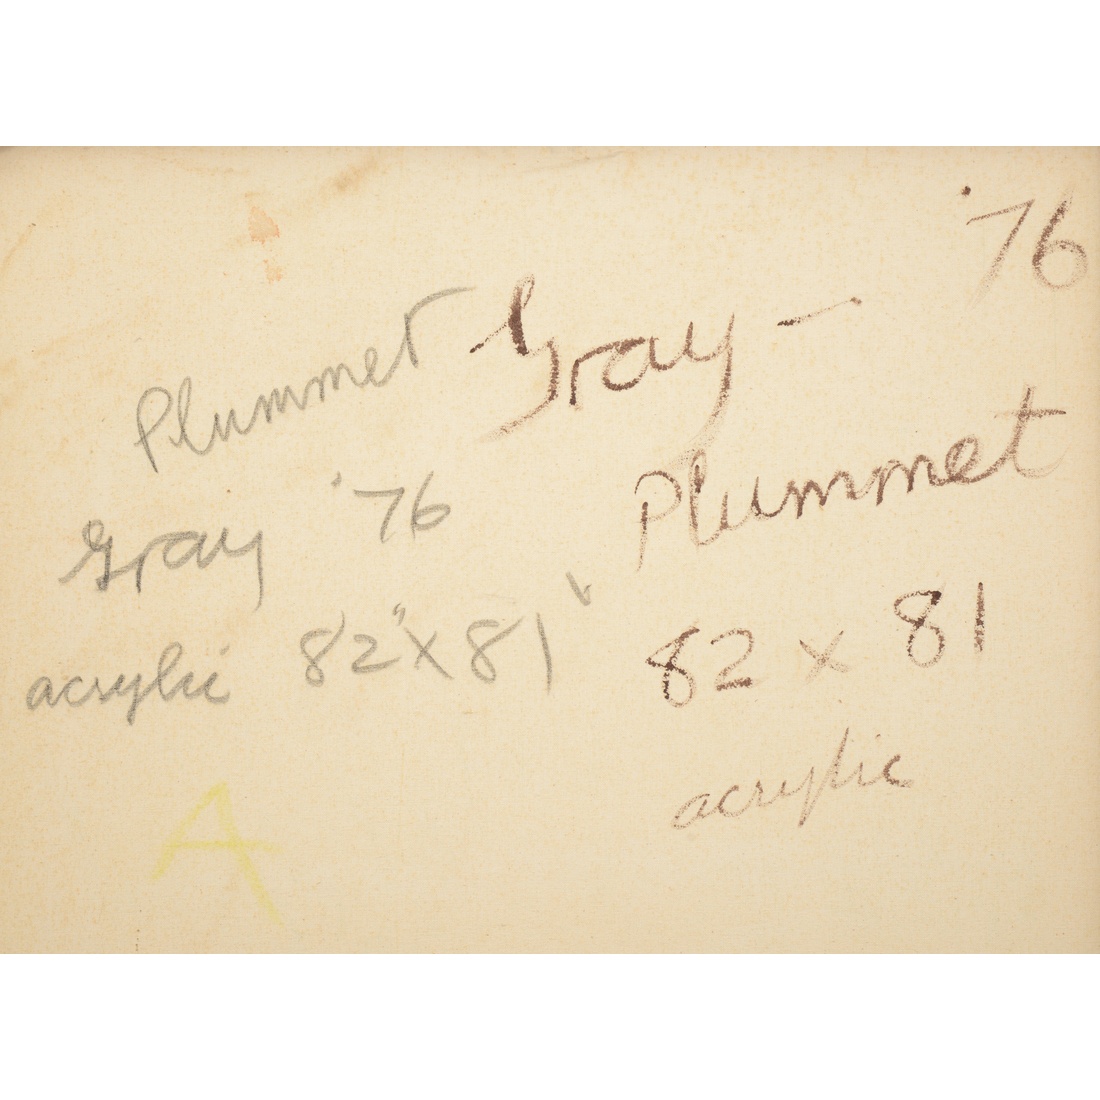 Plummet
Gray '76
acrylic 82" x 81"
A
Gray - '76
Plummet
82 x 81
acrylic